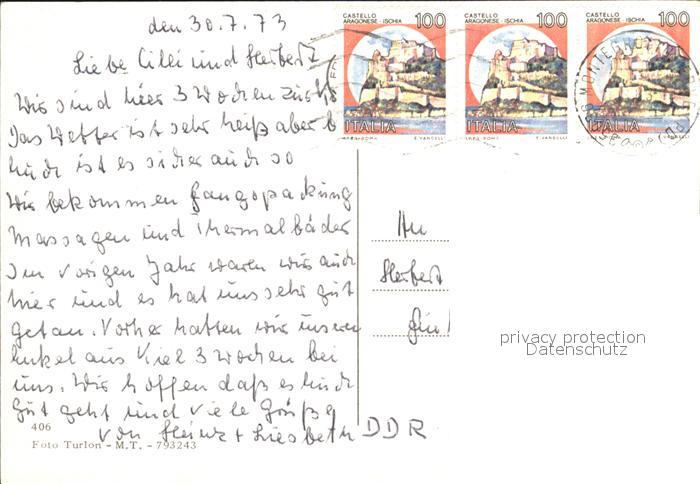 den 30.7.73
Liebe Cilei und Herbert
Wir sind hier 3 Wochen zur
Das Wetter ist sehr heiß aber b
Euch ist es sicher auch so
Wir bekommen Fangopackung
Massagen und Thermalbäder
Im vorigen Jahr waren wir auch
hier und es hat uns sehr gut
getan. Vorher hatten wir unseren
Enkel aus Kiel 3 Wochen bei
uns. Wir hoffen daß es Euch
gut geht und viele Grüße
von Heinz + Liesbeth DDR
CASTELLO ARAGONESE - ISCHIA 100
ITALIA
CASTELLO ARAGONESE - ISCHIA 100
ITALIA
CASTELLO ARAGONESE - ISCHIA 100
ITALIA
An
Herbert
privacy protection
Datenschutz
406
Foto Turlon - M.T. - 793243